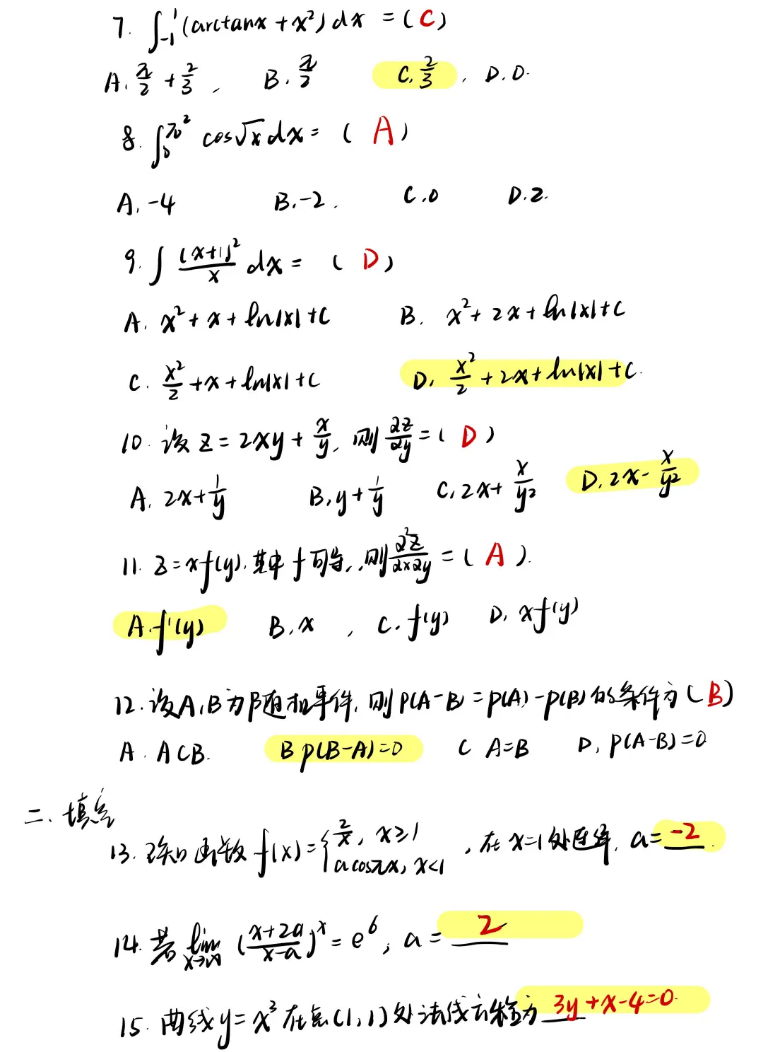 7. ∫₋₁¹(arctanx+x²)dx =(C)
A. π/2+2/3, B. π/2 C. 2/3, D. 0.
8. ∫₀^π² cos√x dx= (A)
A. -4 B. -2. C. 0 D. 2.
9. ∫ (x+1)²/x dx = (D)
A. x²+x+ln|x|+C B. x²+2x+ln|x|+C
C. x²/2+x+ln|x|+C D. x²/2+2x+ln|x|+C.
10. 设z=2xy+x/y, 则∂z/∂y=(D)
A. 2x+1/y B. y+1/y C. 2x+x/y² D. 2x-x/y²
11. z=xf(y). 其中f可导, 则∂²z/∂x∂y=(A).
A. f'(y) B. x, C. f(y) D. xf(y)
12. 设A,B为随机事件, 则P(A-B)=P(A)-P(B)的条件为(B)
A. A⊂B. B P(B-A)=0 C A=B D. P(A-B)=0
二、填空
13. 已知函数f(x)={2/x, x≥1 acosπx, x<1, 在x=1处连续, a=-2.
14. 若lim x→∞ ((x+2a)/(x-a))ˣ=e⁶, a=2
15. 曲线y=x³在点(1,1)处法线方程为3y+x-4=0.